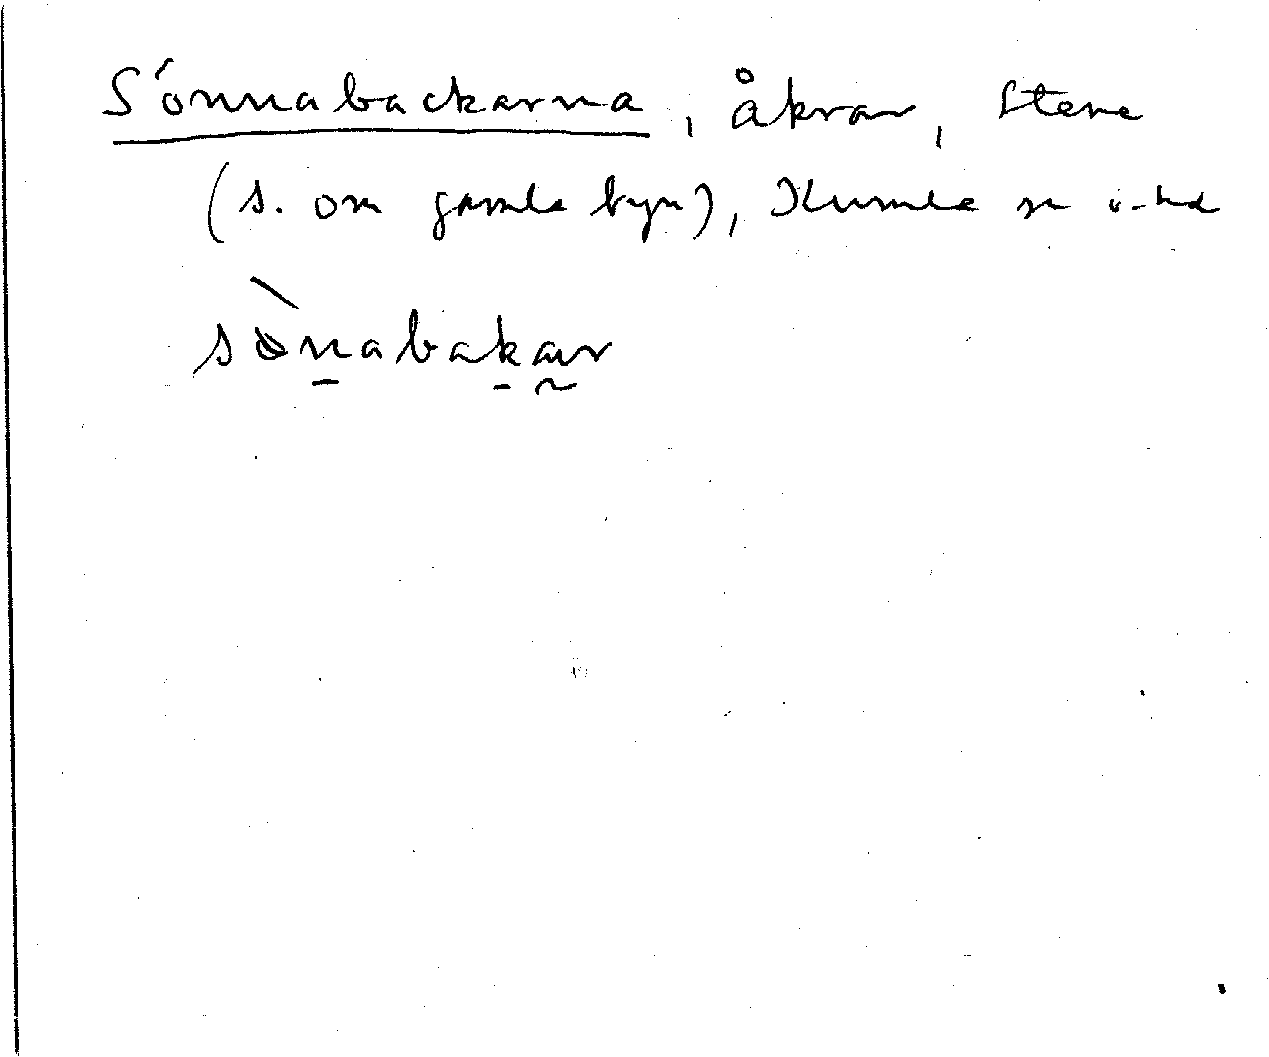 Sönnabackarna, åkrar, Stene
(s. om gamla byn), Kumla sn
sònabakar